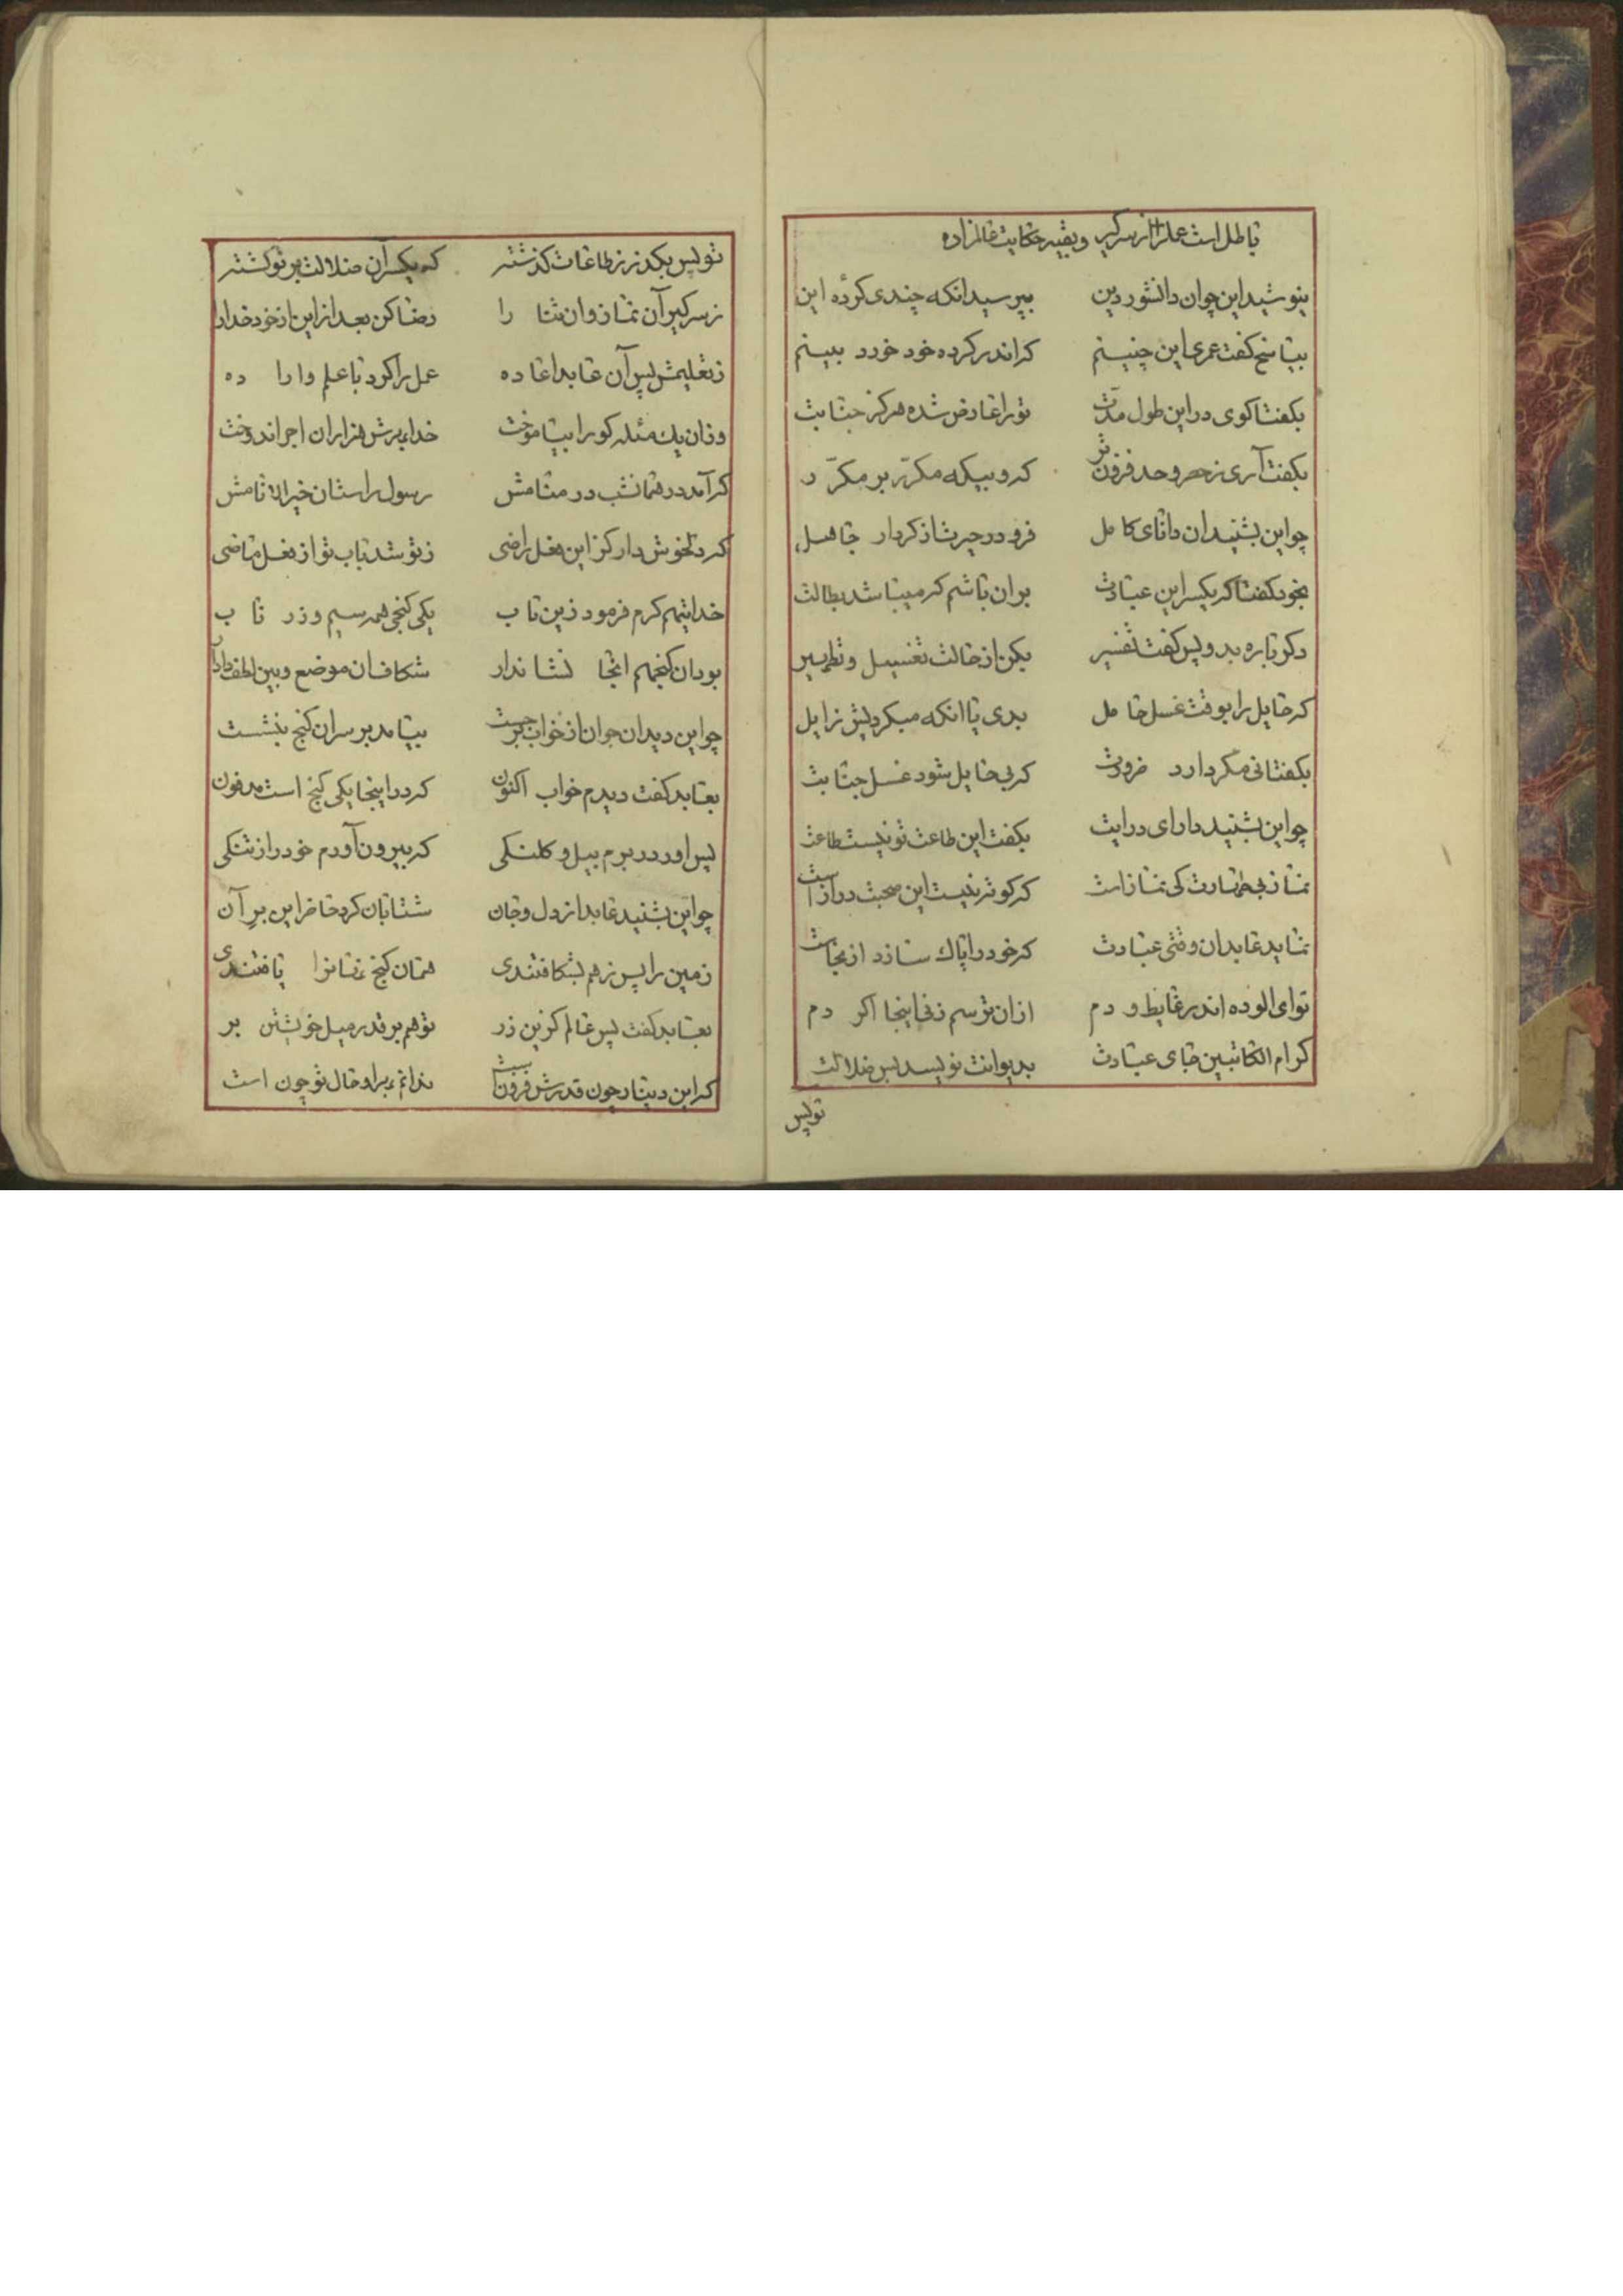 باطل است عمل را از سر گیر و بقیه حکایت عالم زاده
بنوشید این جوان دانشور دین بپرسید آنکه چندی کردهٔ این
بپاسخ گفت عمری این چنینم که اندر کرده خود خورد بینم
بگفتا گوی در این طول مدّت تو را عارض شده هرگز جنابت
بگفت آری ز حصر و حد فزونتر که رو بیگه مکرّر بر مکرّر
چو این بشنید آن دانای کامل فرو در حیرت از کردار جاهل
بخود گفتا که یکسر این عبادت بر آن باشم که میباشد بطالت
دگر باره بدو پس گفت تفسیر بکن از حالت تغسیل و تطهیر
که حایل را بوقت غسل حامل بدی یا آنکه میکردیش زایل
بگفتا نی مگر دارد ضرورت که بی حایل شود غسل جنابت
چو این بشنید دارای درایت بگفت این طاعت تو نیست طاعت
نماز بی طهارت کی نماز است که کوتر نیست این صحبت دراز است
نماید عابد آن وقتی عبادت که خود را پاک سازد از نجاست
تو ای آلوده اندر غایط و دم از آن ترسم زنی اینجا اگر دم
کرام الکاتبین جای عبادت بدیوانت نویسد بس ضلالت
تو پس
تو پس بگذر ز طاعات گذشته که یکسر آن ضلالت بر تو گشته
ز سر گیر آن نماز و آن ثنا را رضا کن بعد از این از خود خدا را
ز تعلیمش پس آن عابد اعاده عمل را کرد با علم و اراده
و زان یک مسئله کو را بیاموخت خدا بهرش هزاران اجر اندوخت
که آمد در همانشب در منامش رسول راستان خیر الانامش
که دلخوش دار کز این فعل راضی ز تو شد باب تو از فعل ماضی
خدایتهم کرم فرمود زین باب یکی گنجی همه سیم و زر ناب
بود آن گنجهم اینجا نشاندار شکاف آن موضع و بین لطف دادار
چو این دید آن جوان از خواب برجست بیامد بر سر آن گنج بنشست
بعابد گفت دیدم خواب اکنون که در اینجا یکی گنج است مدفون
پس آور در برم بیل و کلنگی که بیرون آورم خود را ز تنگی
چو این بشنید عابد از دل و جان شتابان کرد حاضر این بر آن
زمین را پس ز هم بشکافتندی همان گنج نهانرا یافتندی
بعابد گفت پس عالم کزین زر تو هم بر قدر میل خویشتن بر
که این دینار چون قدرش فزون است ندانم بهر او حال تو چون است